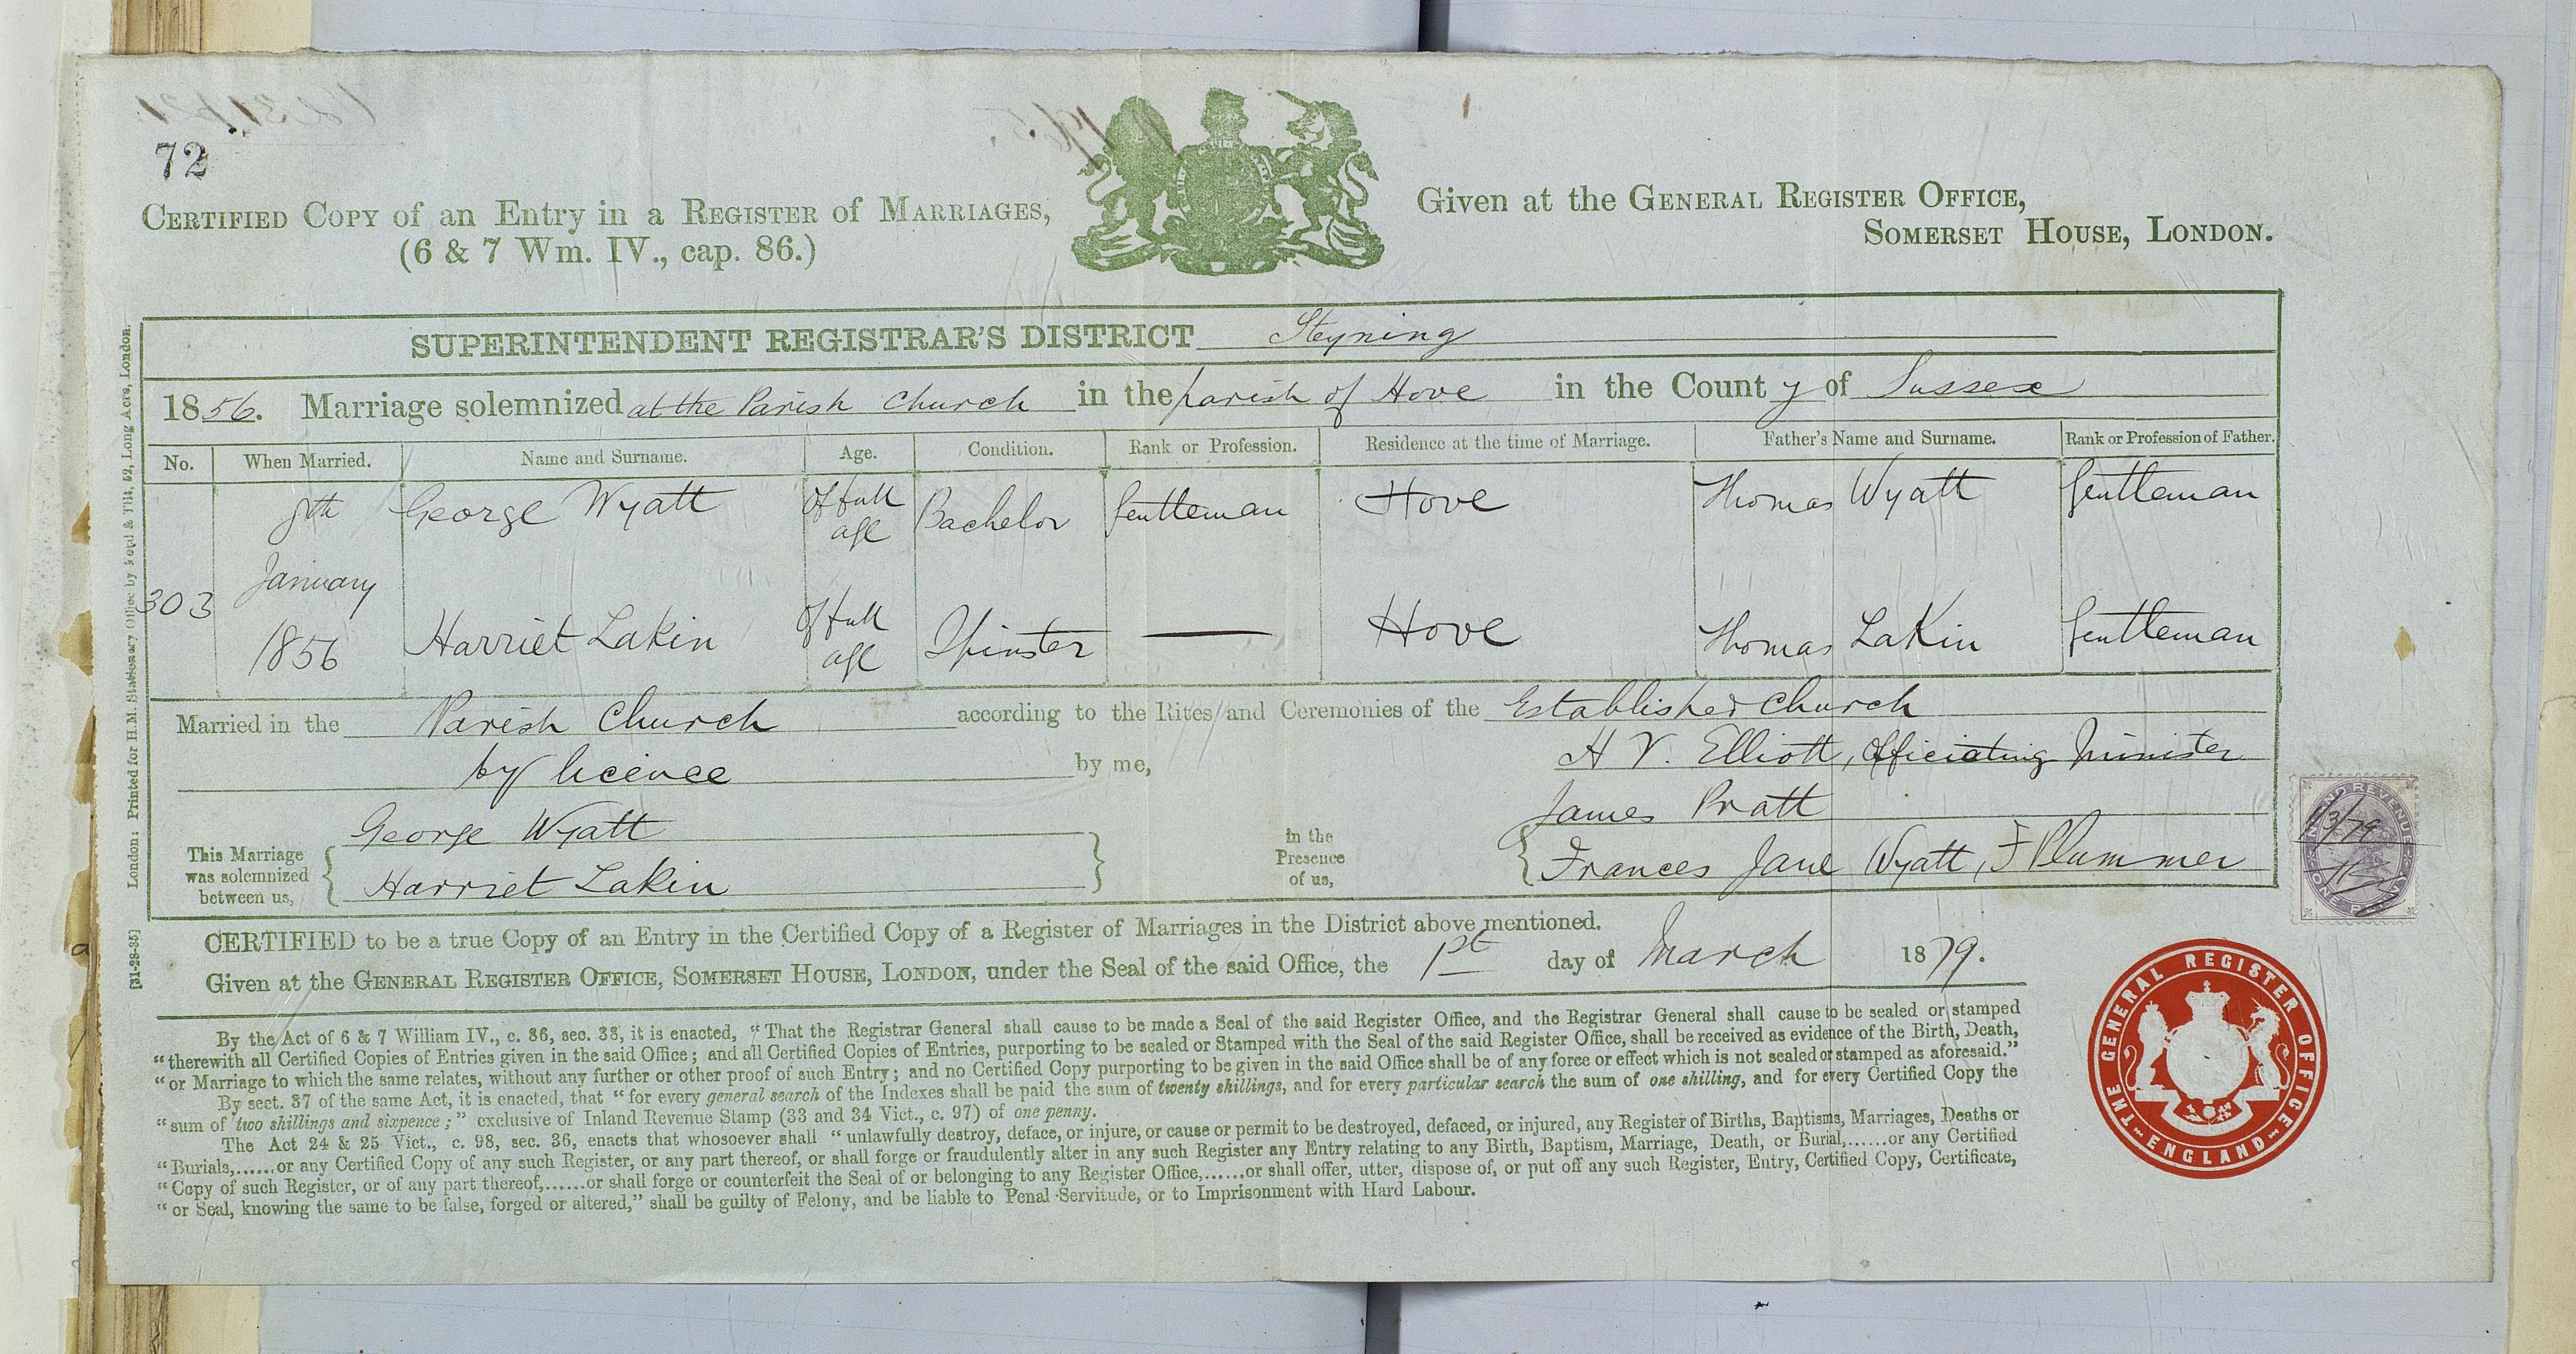 72
CERTIFIED COPY of an Entry in a REGISTER of MARRIAGES,
(6 & 7 Wm. IV., cap. 86.)
Given at the GENERAL REGISTER OFFICE,
SOMERSET HOUSE, LONDON.
SUPERINTENDENT REGISTRAR'S DISTRICT Steyning
1856. Marriage solemnized at the Parish Church in the parish of Hove in the County of Sussex
No. When Married. Name and Surname. Age. Condition. Rank or Profession. Residence at the time of Marriage. Father's Name and Surname. Rank or Profession of Father.
303
8th January 1856
George Wyatt Of full age Bachelor Gentleman Hove Thomas Wyatt Gentleman
Harriet Lakin Of full age Spinster — Hove Thomas Lakin Gentleman
Married in the Parish Church according to the Rites and Ceremonies of the Established Church
by licence by me, H V. Elliott, Officiating Minister
This Marriage
was solemnized
between us,
George Wyatt
Harriet Lakin
in the
Presence
of us,
James Pratt
Frances Jane Wyatt, F Plummer
CERTIFIED to be a true Copy of an Entry in the Certified Copy of a Register of Marriages in the District above mentioned.
Given at the GENERAL REGISTER OFFICE, SOMERSET HOUSE, LONDON, under the Seal of the said Office, the 1st day of March 1879.
By the Act of 6 & 7 William IV., c. 86, sec. 38, it is enacted, "That the Registrar General shall cause to be made a Seal of the said Register Office, and the Registrar General shall cause to be sealed or stamped
"therewith all Certified Copies of Entries given in the said Office; and all Certified Copies of Entries, purporting to be sealed or Stamped with the Seal of the said Register Office, shall be received as evidence of the Birth, Death,
"or Marriage to which the same relates, without any further or other proof of such Entry; and no Certified Copy purporting to be given in the said Office shall be of any force or effect which is not sealed or stamped as aforesaid."
By sect. 37 of the same Act, it is enacted, that "for every general search of the Indexes shall be paid the sum of twenty shillings, and for every particular search the sum of one shilling, and for every Certified Copy the
"sum of two shillings and sixpence;" exclusive of Inland Revenue Stamp (33 and 34 Vict., c. 97) of one penny.
The Act 24 & 25 Vict., c. 98, sec. 36, enacts that whosoever shall "unlawfully destroy, deface, or injure, or cause or permit to be destroyed, defaced, or injured, any Register of Births, Baptisms, Marriages, Deaths or
"Burials,......or any Certified Copy of any such Register, or any part thereof, or shall forge or fraudulently alter in any such Register any Entry relating to any Birth, Baptism, Marriage, Death, or Burial,......or any Certified
"Copy of such Register, or of any part thereof,......or shall forge or counterfeit the Seal of or belonging to any Register Office,......or shall offer, utter, dispose of, or put off any such Register, Entry, Certified Copy, Certificate,
"or Seal, knowing the same to be false, forged or altered," shall be guilty of Felony, and be liable to Penal Servitude, or to Imprisonment with Hard Labour.
London: Printed for H.M. Stationary Office by Ford & Tilt, 52, Long Acre, London.
[31-28-35]
INLAND REVENUE
ONE PENNY
1/3/79
THE GENERAL REGISTER OFFICE
ENGLAND